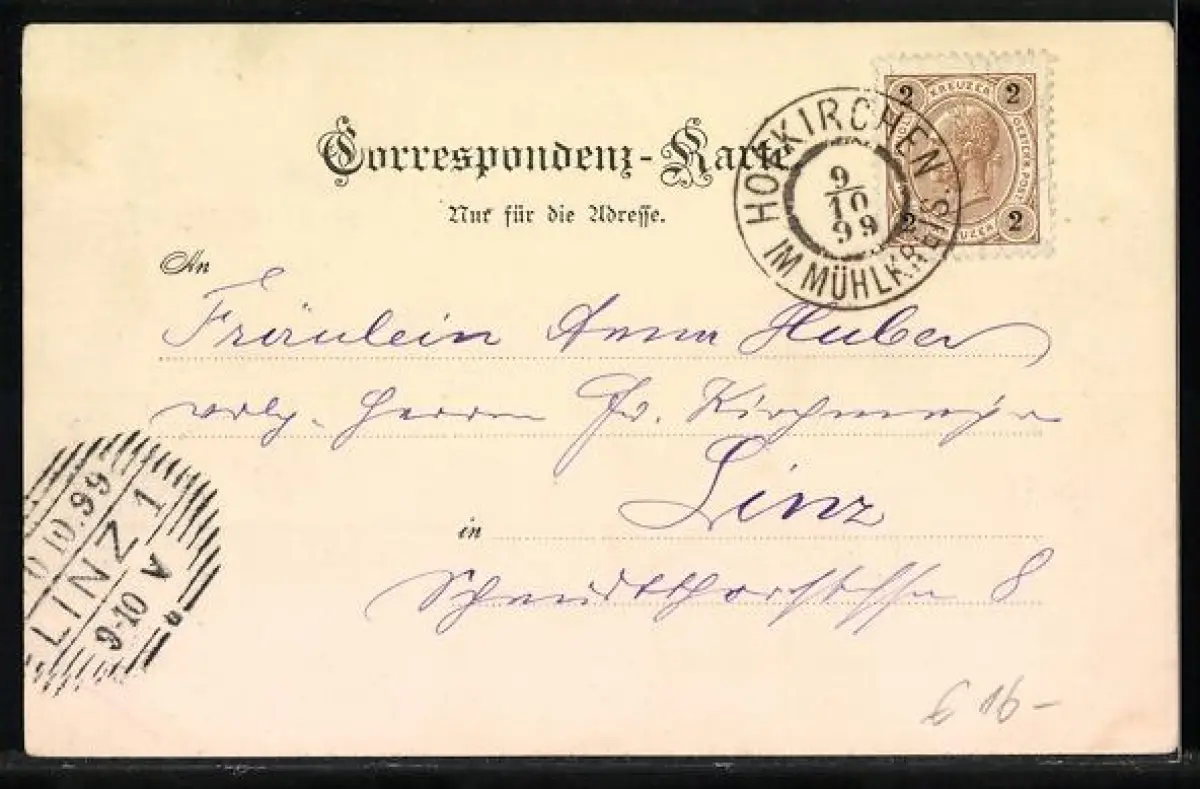 Correspondenz-Karte
Nur für die Adresse.
2 KREUZER 2
OESTERR. POST
2 KREUZER 2
HOFKIRCHEN
IM MÜHLKREIS.
9/10
99
An
Fräulein Anna Huber
Herrn Kirchmayr
in Linz
8
10.99
LINZ 1
9-10 V